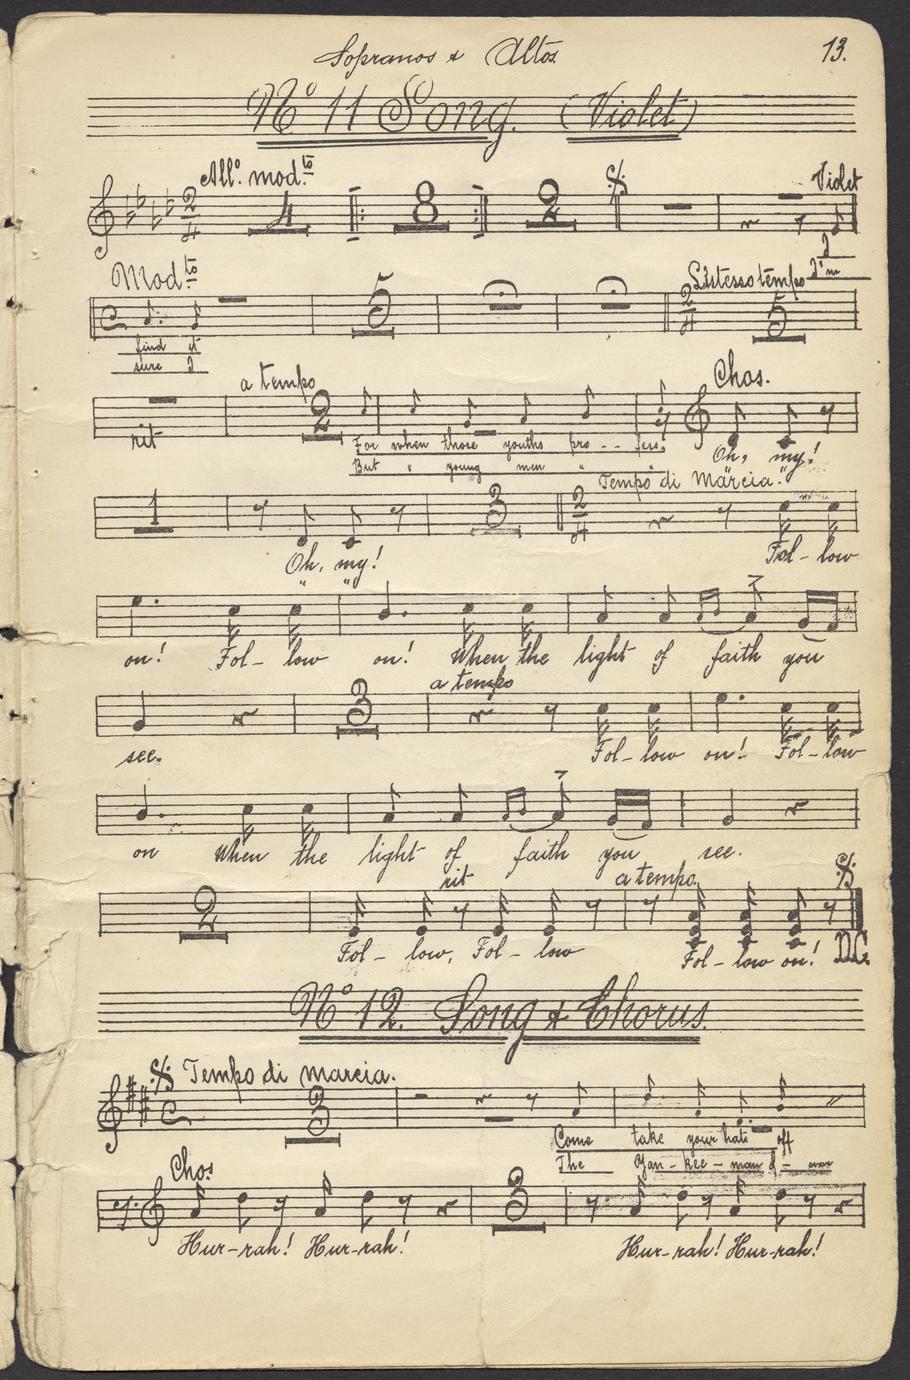 Sopranos & Altos. 13.
No 11 Song. (Violet)
All.o mod.to Violet
4 8 2
I
I'm
Mod.to L'istesso tempo
5 5
find it
sure I
a tempo Chos.
rit 2
For when those youths pro - - fess, Oh, my!
But " young men " " " "
Tempo di marcia.
1 3
Oh, my! Fol - low
" "
on! Fol - low on! When the light of faith you
a tempo
3
see. Fol - low on! Fol - low
on when the light of faith you see.
rit a tempo.
2
Fol - low, Fol - low Fol - low on! D.C.
No 12. Song & Chorus.
Tempo di marcia.
3
Come take your hats off
The Yan - kee - man
Chos.
3
Hur - rah! Hur - rah! Hur - rah! Hur - rah!